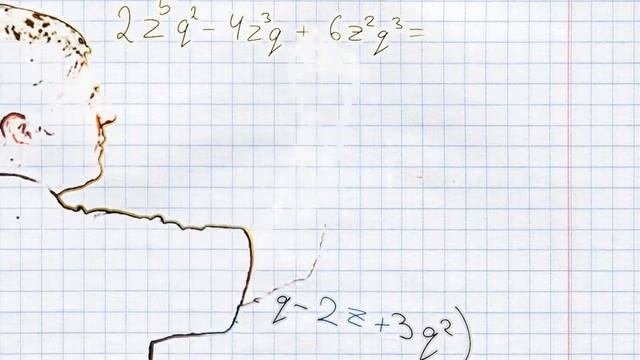 2z⁵q² - 4z³q + 6z²q³ =
q - 2z + 3q²)